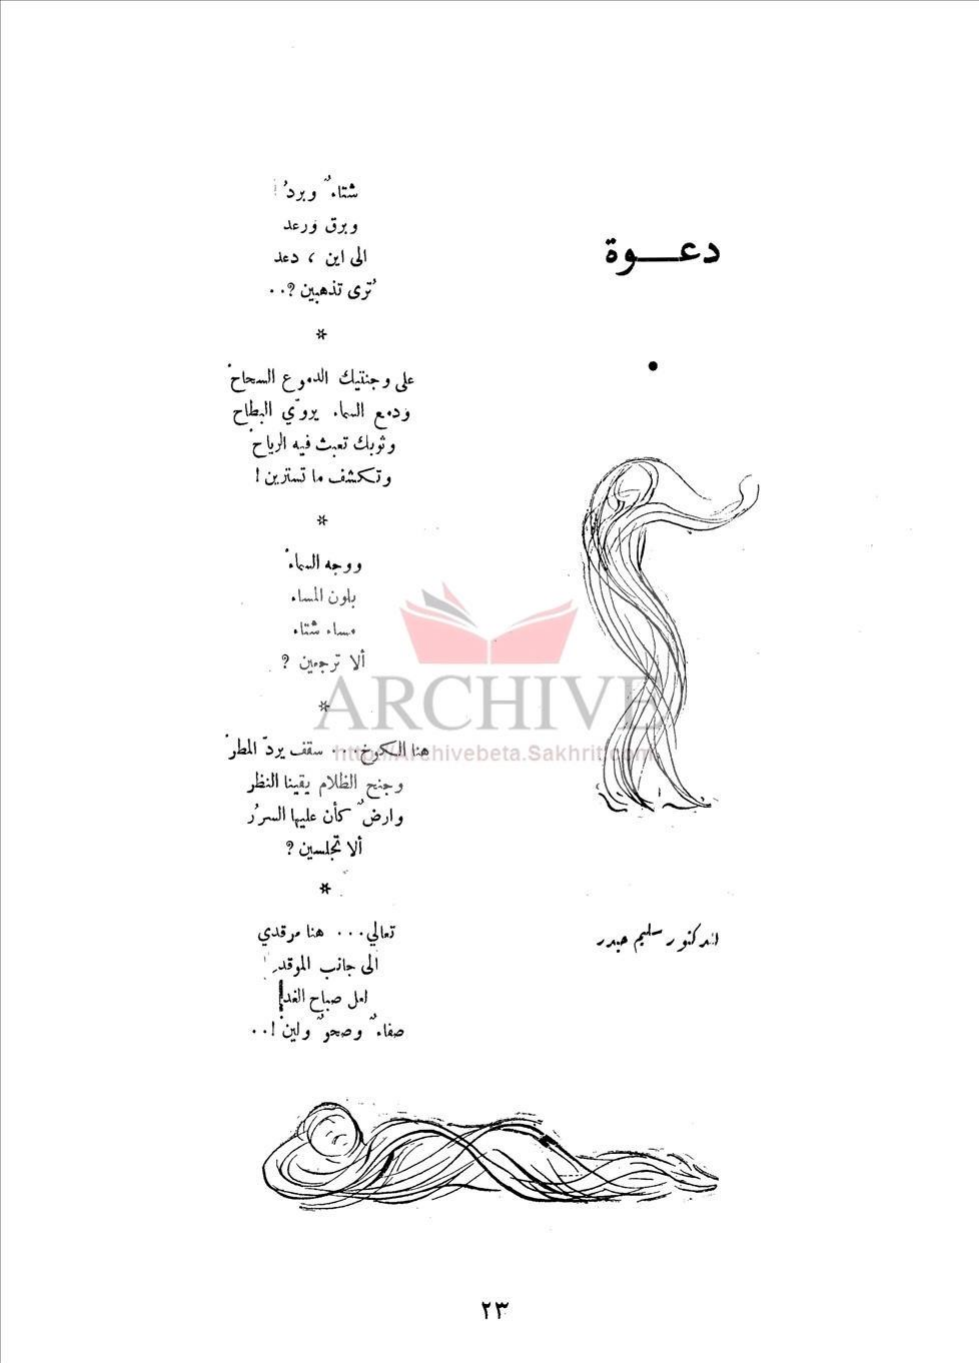 دعـــوة
شتاءٌ وبردُ
وبرق ورعد
الى اين ، دعد
تُرى تذهبين ؟..
*
على وجنتيك الدموع السحاحْ
ودمع السماء يروّي البطاح
وثوبك تعبث فيه الرياحْ
وتكشف ما تسترين !
*
ووجه السماءْ
بلون المساء
مساء شتاء
ألا ترجعين ؟
*
هنا الكوخ... سقف يردّ المطرْ
وجنح الظلام يقينا النظر
وارضٌ كأن عليها السرُر
ألا تجلسين ؟
*
تعالي... هنا مرقدي
الى جانب الموقد
لعل صباح الغد
صفاءٌ وصحوٌ ولينْ !..
الدكتور سليم حيدر
ARCHIVE
http://Archivebeta.Sakhrit.com
٢٣